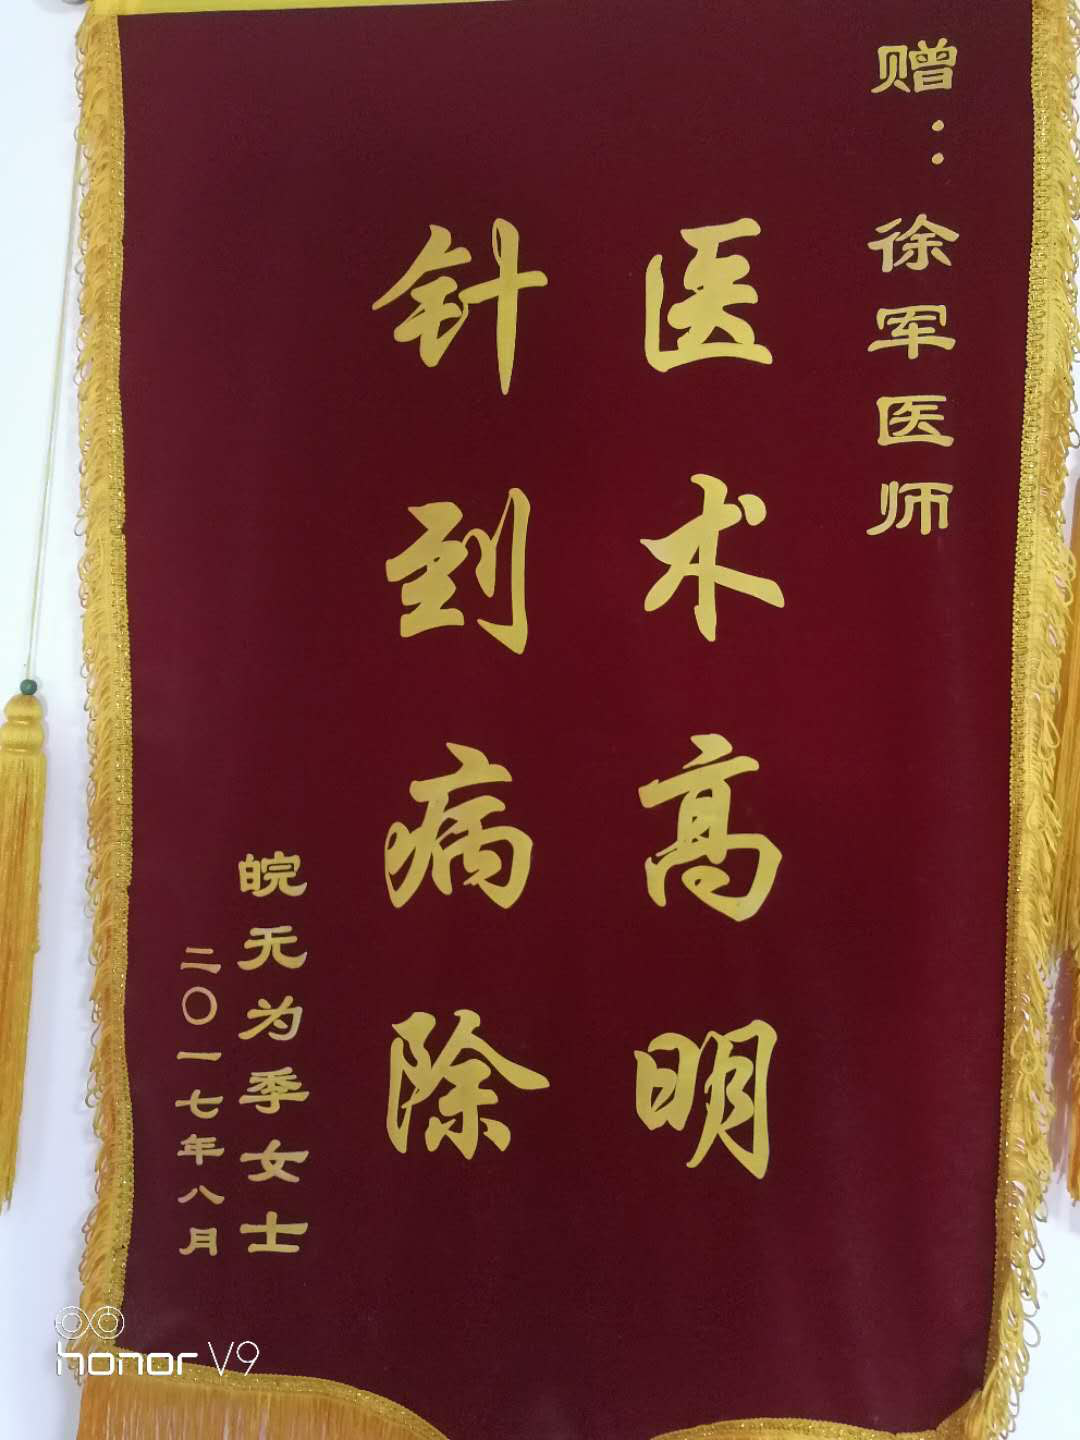 赠：徐军医师
医术高明
针到病除
皖无为季女士
二〇一七年八月
honor V9